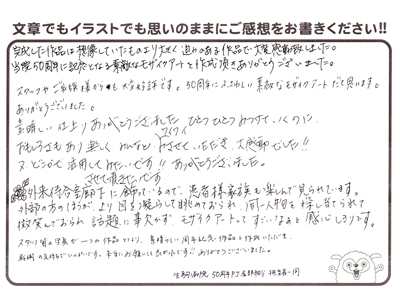 文章でもイラストでも思いのままにご感想をお書きください!!
完成した作品は想像していたものより大きく迫力のある作品で大変感動致しました。
当院50周年に記念となる素敵なモザイクアートを作成頂きありがとうございました。
スタッフやご家族様からも大好評です。50周年にふさわしい素敵なモザイクアートだと思います。
ありがとうございました。
素晴しい仕上り ありがとうございました ひとつひとつ みつけて、
ワイワイ
楽しく みんなと みさせて、いただき、大感謝でした!!
又、どこかで 活用してみたいです!! ありがとうございました。
させて頂きたいです
外来待合室廊下に飾っているので、患者様家族も楽しんで見られています。
外部の方のほうが、より目を凝らして眺めておられ、同一人物を探し当てられて
微笑んでおられ 話題に事欠かず モザイクアートって すごいなぁと 感心しきりです。
スタッフ皆の写真が一つの作品となり、素晴らしい周年記念作品を作成いただき、
感謝の気持ちでいっぱいです。本当にお願いして良かったです。ありがとうございました。
生駒病院 50周年PJ 担当者一同